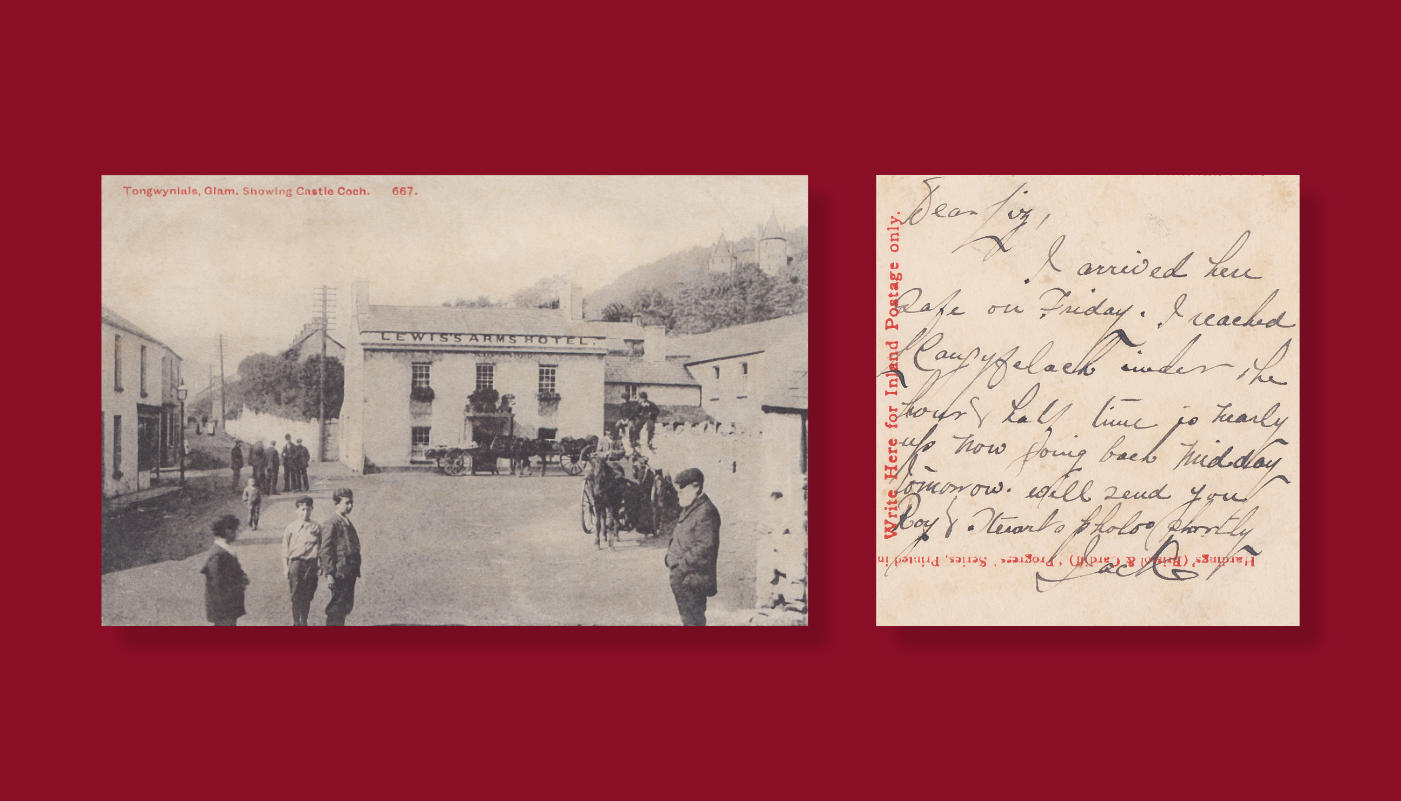 Tongwynlais, Glam. Showing Castle Coch. 667.
LEWIS'S ARMS HOTEL.
Write Here for Inland Postage only.
Dear Liz,
I arrived here
safe on Friday. I reached
Llangyfelach under the
hour & half time is nearly
up now going back midday
tomorrow. will send you
Roy & Stuarts photos shortly
Jack
Hardings' (Bristol & Cardiff) 'Progress' Series, Printed in